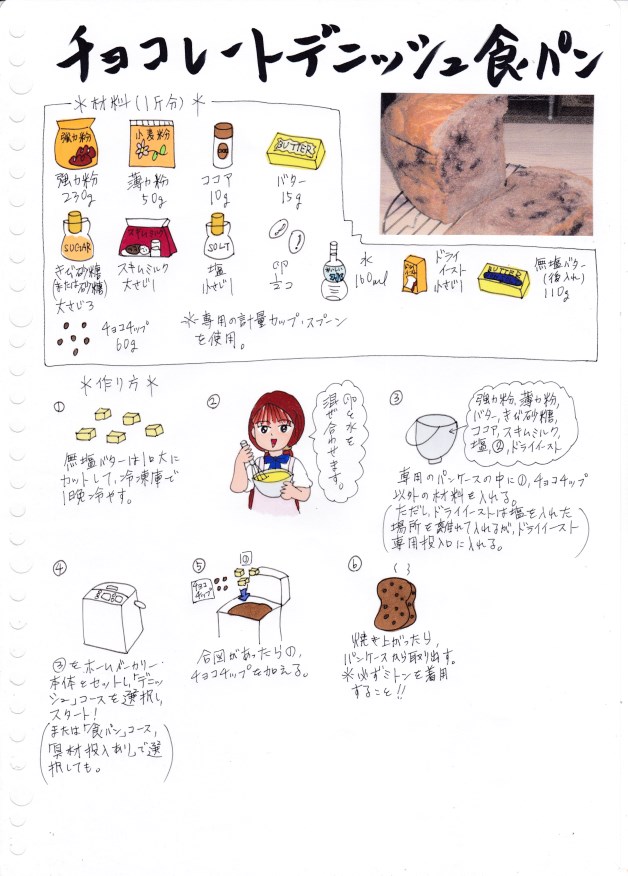 チョコレートデニッシュ食パン
＊材料(1斤分)＊
強力粉
小麦粉
BUTTER
強力粉
230g
薄力粉
50g
ココア
10g
バター
15g
SUGAR
スキムミルク
SOLT
きび砂糖
(または砂糖)
大さじ3
スキムミルク
大さじ1
塩
小さじ1
卵
2コ
水
160ml
ドライ
イースト
小さじ1
BUTTER
無塩バター
(後入れ)
110g
チョコチップ
60g
＊専用の計量カップ・スプーン
を使用。
＊作り方＊
①
無塩バターは1口大に
カットして、冷凍庫で
1晩冷やす。
②
卵と水を
混ぜ合わせます。
③
強力粉、薄力粉、
バター、きび砂糖、
ココア、スキムミルク、
塩、②、ドライイースト
専用のパンケースの中に①、チョコチップ
以外の材料を入れる。
(ただし、ドライイーストは塩を入れた
場所を離れて入れるが、ドライイースト
専用投入口に入れる。)
④
③をホームベーカリー・
本体とセットし、「デニッ
シュ」コースを選択し、
スタート!
(または「食パン」コース、
「具材投入あり」で選
択しても。)
⑤
チョコ
チップ
①
合図があったら①、
チョコチップを加える。
⑥
焼き上がったら、
パンケースから取り出す。
＊必ずミトンを着用
すること!!